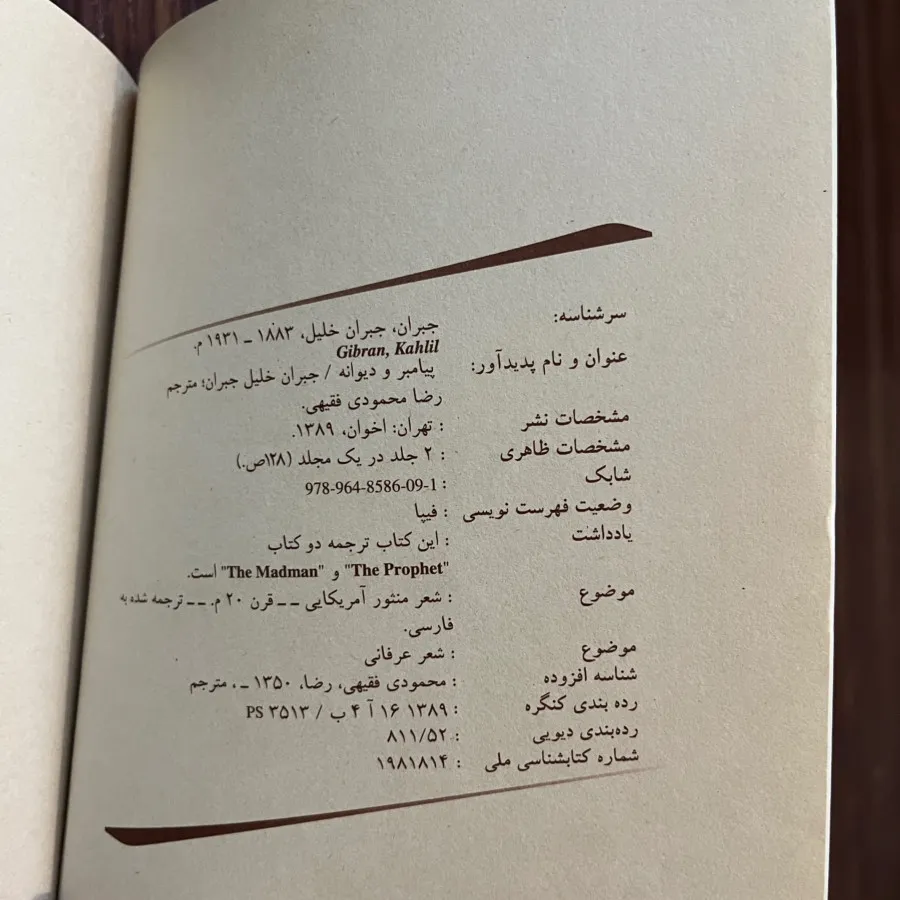 سرشناسه: جبران، جبران خلیل، ۱۸۸۳ ـ ۱۹۳۱ م.
Gibran, Kahlil
عنوان و نام پدیدآور: پیامبر و دیوانه / جبران خلیل جبران؛ مترجم
رضا محمودی فقیهی.
مشخصات نشر : تهران: اخوان، ۱۳۸۹.
مشخصات ظاهری : ۲ جلد در یک مجلد (۱۲۸ص.)
شابک : 978-964-8586-09-1
وضعیت فهرست نویسی : فیپا
یادداشت : این کتاب ترجمه دو کتاب
"The Prophet" و "The Madman" است.
موضوع : شعر منثور آمریکایی ـ ـ قرن ۲۰ م. ـ ـ ترجمه شده به
فارسی.
موضوع : شعر عرفانی
شناسه افزوده : محمودی فقیهی، رضا، ۱۳۵۰ ـ ، مترجم
رده بندی کنگره : ۱۳۸۹ ۱۶ آ ۴ ب / PS ۳۵۱۳
رده‌بندی دیویی : ۸۱۱/۵۲
شماره کتابشناسی ملی : ۱۹۸۱۸۱۴